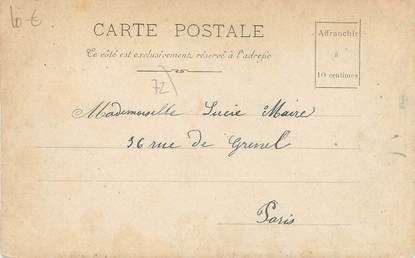 10 €
CARTE POSTALE
Ce côté est exclusivement réservé à l'adresse
Affranchir
à
10 centimes
72)
Mademoiselle Lucie Maire
36 rue de Grenel
Paris